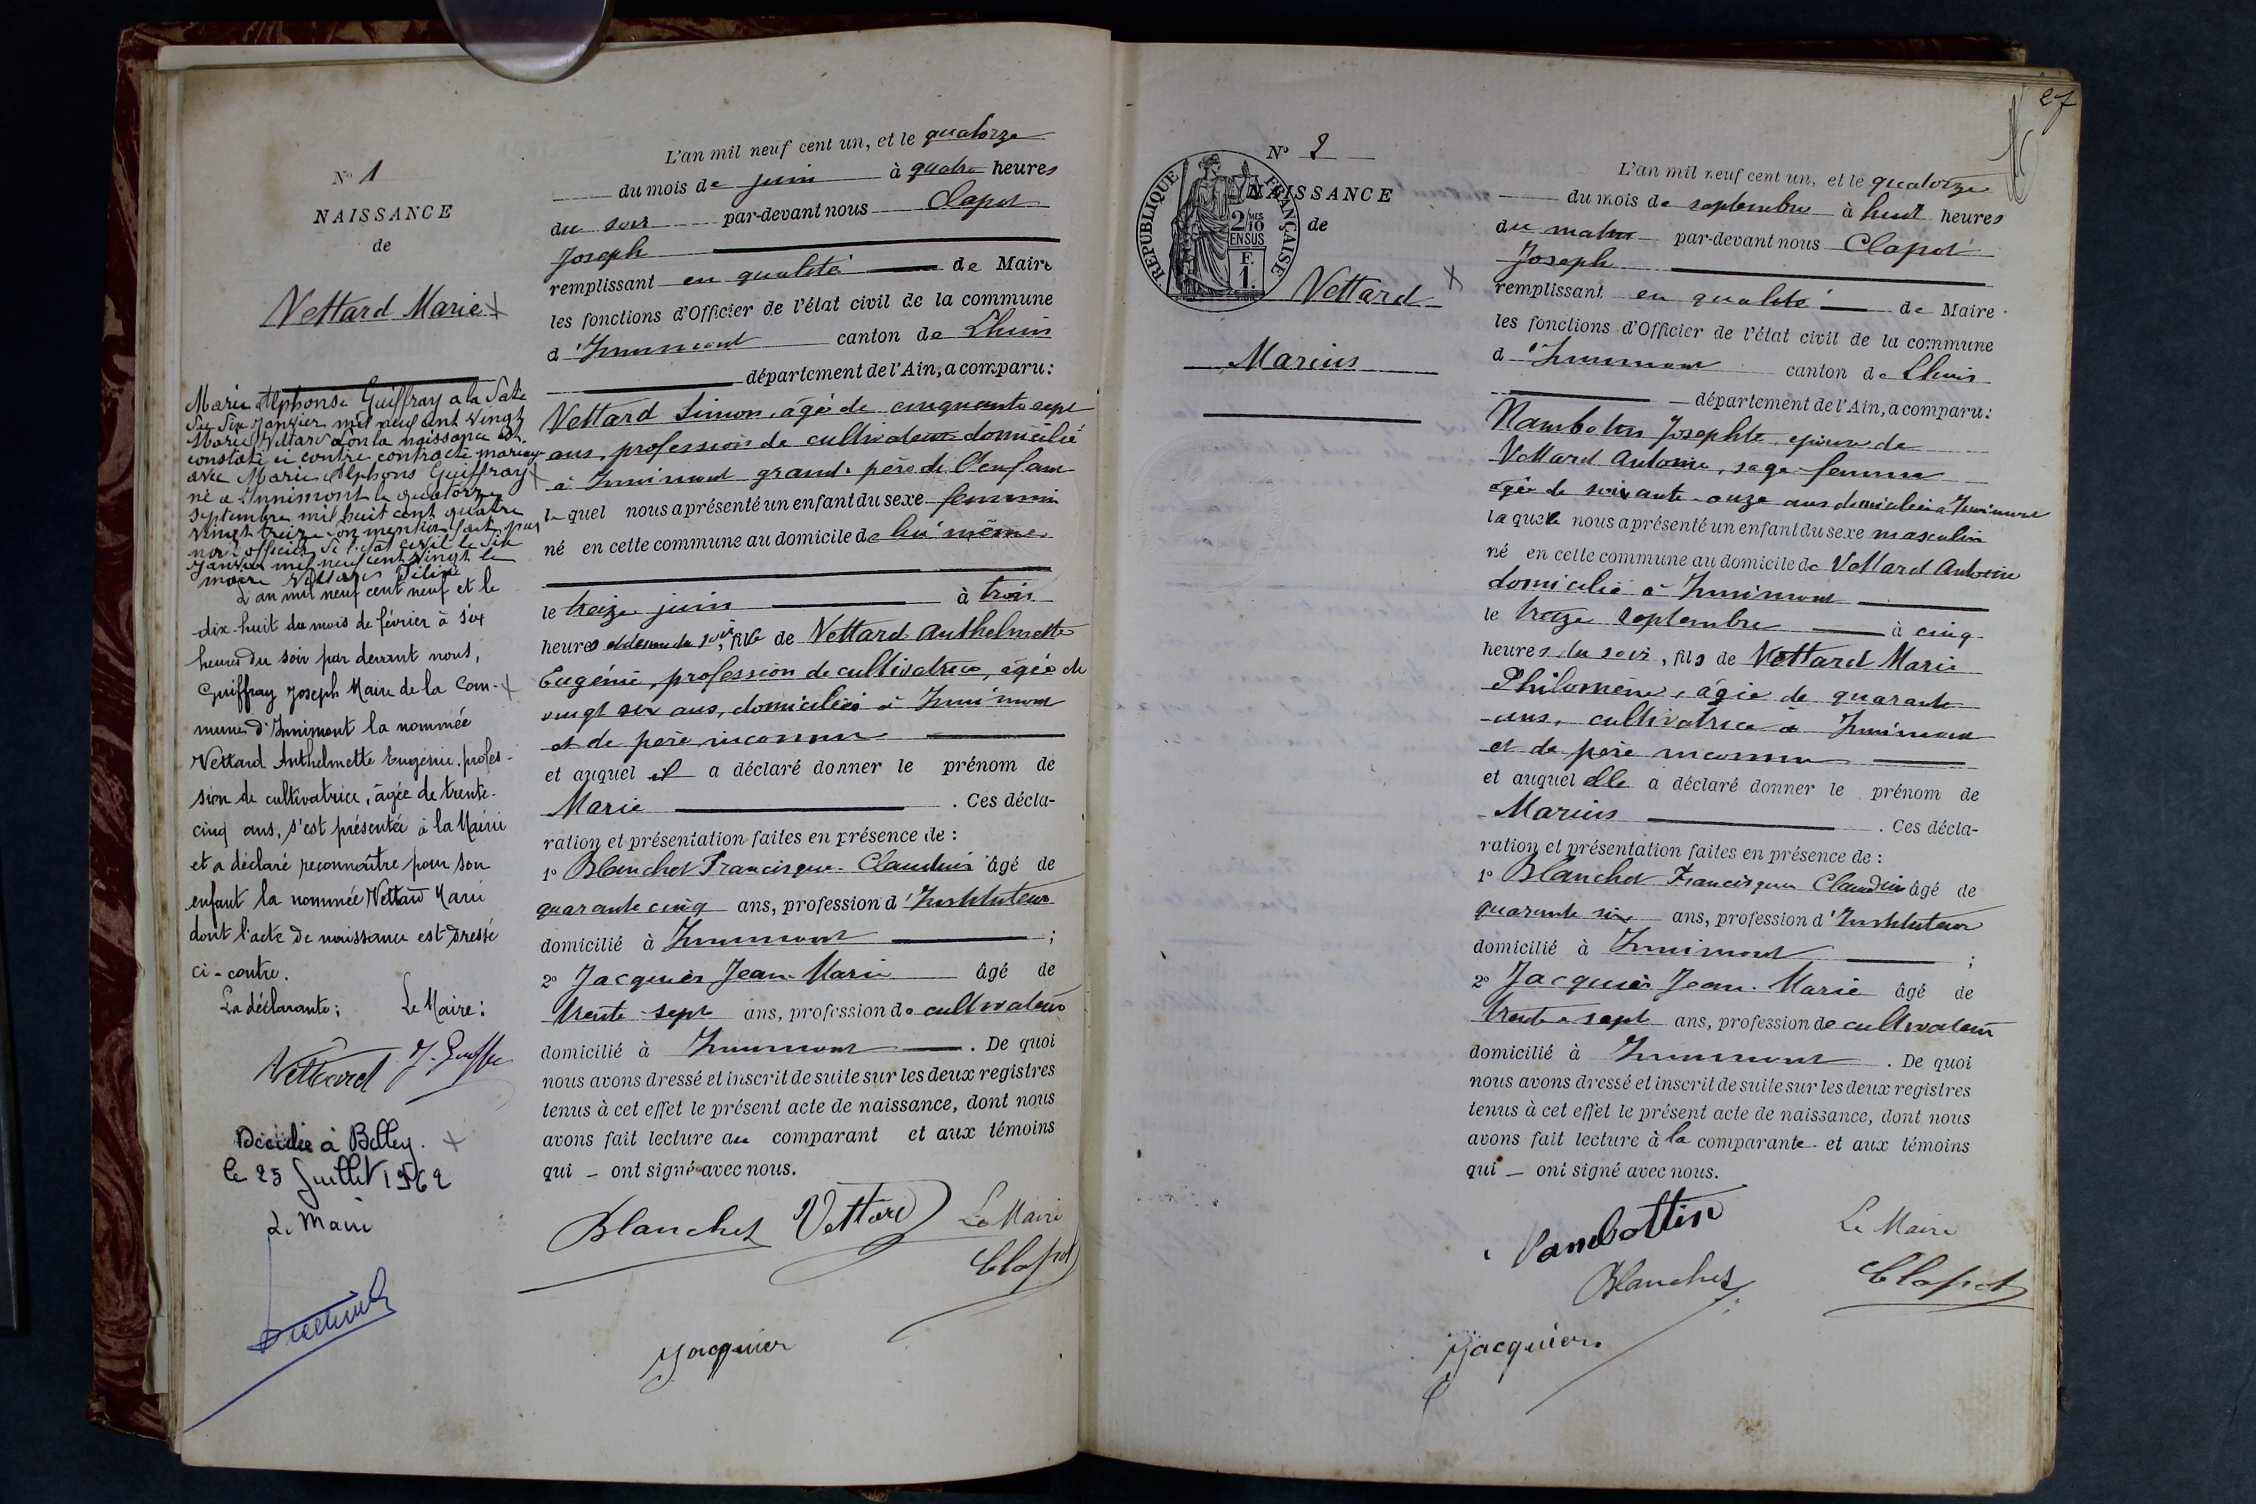 N° 1
NAISSANCE
de
Vettard Marie
Marie Alphonse Guiffray a la date
du six Janvier mil neuf cent vingt
Marie Vettard dont la naissance est
constaté ci contre contracté mariage
avec Marie Alphons Guiffray
né a Innimont le quatorze
septembre mil huit cent quatre
vingt treize
officier de l'état civil le six
Janvier mil neuf cent vingt le
maire Vettard
L'an mil neuf cent neuf et le
dix-huit du mois de février à six
heures du soir par devant nous,
Guiffray Joseph Maire de la Com-
mune d'Innimont la nommée
Vettard Anthelmette Eugénie, profes-
sion de cultivatrice, âgée de trente-
cinq ans, s'est présentée à la Mairie
et a déclaré reconnaître pour son
enfant la nommée Vettard Marie
dont l'acte de naissance est dressé
ci-contre.
La déclarante; Le Maire:
Vettard J. Guiffray
Décédée à Belley.
le 25 Juillet 1962
Le Maire
L'an mil neuf cent un, et le quatorze
du mois de juin à quatre heures
du soir par-devant nous Clapot
Joseph
remplissant en qualité de Maire
les fonctions d'Officier de l'état civil de la commune
d'Innimont canton de Lhuis
département de l'Ain, a comparu:
Vettard Simon, âgé de cinquante sept
ans, profession de cultivateur domicilié
à Innimont grand-père de l'enfant
lequel nous a présenté un enfant du sexe féminin
né en cette commune au domicile de lui même
le treize juin à trois
heures et demie du soir, fille de Vettard Anthelmette
Eugénie, profession de cultivatrice, âgée de
vingt six ans, domiciliée à Innimont
et de père inconnu
et auquel il a déclaré donner le prénom de
Marie . Ces décla-
ration et présentation faites en présence de :
1° Blanchet Francisque-Claudius âgé de
quarante cinq ans, profession d'Instituteur
domicilié à Innimont ;
2° Jacquier Jean-Marie âgé de
trente-sept ans, profession de cultivateur
domicilié à Innimont . De quoi
nous avons dressé et inscrit de suite sur les deux registres
tenus à cet effet le présent acte de naissance, dont nous
avons fait lecture au comparant et aux témoins
qui – ont signé avec nous.
Blanchet Vettard Le Maire
Clapot
Jacquier
27
N° 2
RÉPUBLIQUE FRANÇAISE
2/10MES
EN SUS
F.
1.
NAISSANCE
de
Vettard
Marius
L'an mil neuf cent un, et le quatorze
du mois de septembre à huit heures
du matin par-devant nous Clapot
Joseph
remplissant en qualité de Maire
les fonctions d'Officier de l'état civil de la commune
d'Innimont canton de Lhuis
département de l'Ain, a comparu:
Josephte, épouse de
Vettard Antoine, sage-femme
agée de soixante-onze ans domiciliée à Innimont
laquelle nous a présenté un enfant du sexe masculin
né en cette commune au domicile de Vettard Antoine
domicilié à Innimont
le treize septembre à cinq
heures du soir, fils de Vettard Marie
Philomène, âgée de quarante
ans, cultivatrice à Innimont
et de père inconnu
et auquel elle a déclaré donner le prénom de
Marius . Ces décla-
ration et présentation faites en présence de :
1° Blanchet Francisque Claudius âgé de
quarante six ans, profession d'Instituteur
domicilié à Innimont ;
2° Jacquier Jean-Marie âgé de
trente-sept ans, profession de cultivateur
domicilié à Innimont . De quoi
nous avons dressé et inscrit de suite sur les deux registres
tenus à cet effet le présent acte de naissance, dont nous
avons fait lecture à la comparante et aux témoins
qui – ont signé avec nous.
Blanchet Le Maire
Clapot
Jacquier